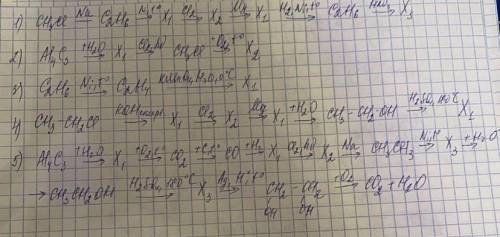 1) CH₃Cl Na→ C₂H₆ Ni,t°→ X₁ Cl₂→ X₂ Mg→ X₁ H₂,Ni,t°→ C₂H₆ HNO₃→ X₃
2) Al₄C₃ +H₂O→ X₁ Cl₂,hν→ CH₃Cl +O₂,t°→ X₂
3) C₂H₆ Ni,t°→ C₂H₄ KMnO₄,H₂O,0°C→ X₁
4) CH₃-CH₂Cl KOH спирт→ X₁ Cl₂→ X₂ Mg→ X₁ +H₂O→ CH₃-CH₂-OH H₂SO₄, °C→ X₁
5) Al₄C₃ +H₂O→ X₁ +O₂,t°→ CO₂ +C,t°→ CO +H₂→ X₁ Cl₂,hν→ X₂ Na→ CH₃CH₃ Ni,t°→ X₃ +H₂O→
→ CH₃CH₂OH H₂SO₄, °C→ X₃ → CH₂-CH₂ +O₂→ CO₂+H₂O
OH OH